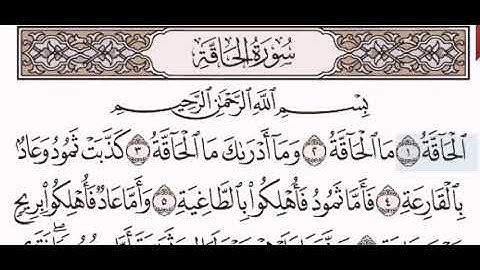 سُورَةُ الْحَاقَّةِ
بِسْمِ اللَّهِ الرَّحْمَٰنِ الرَّحِيمِ
الْحَاقَّةُ ١ مَا الْحَاقَّةُ ٢ وَمَا أَدْرَاكَ مَا الْحَاقَّةُ ٣ كَذَّبَتْ ثَمُودُ وَعَادٌ
بِالْقَارِعَةِ ٤ فَأَمَّا ثَمُودُ فَأُهْلِكُوا بِالطَّاغِيَةِ ٥ وَأَمَّا عَادٌ فَأُهْلِكُوا بِرِيحٍ